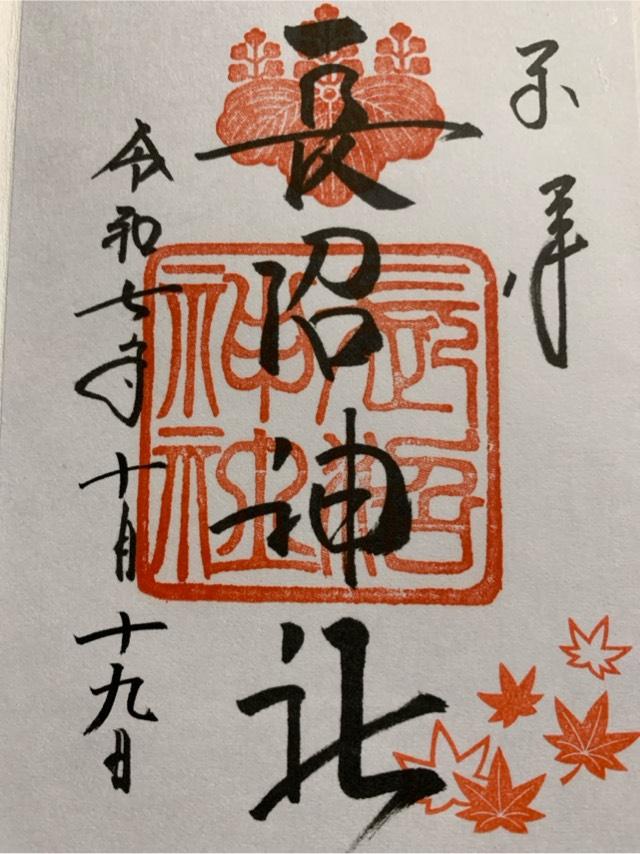 奉拝
長沼神社
長沼神社
令和七年十月十九日